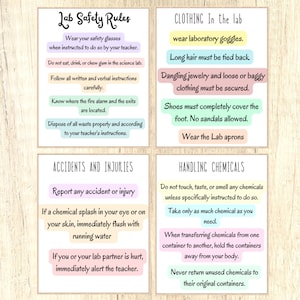 Lab Safety Rules
Wear your safety glasses
when instructed to do so by your teacher.
Do not eat, drink, or chew gum in the science lab.
Follow all written and verbal instructions
carefully.
Know where the fire alarm and the exits
are located.
Dispose of all waste properly and according
to your teacher's instructions.
CLOTHING In the lab
wear laboratory goggles.
Long hair must be tied back.
Dangling jewelry and loose or baggy
clothing must be secured.
Shoes must completely cover the
foot. No sandals allowed.
Wear the Lab aprons
ACCIDENTS AND INJURIES
Report any accident or injury
If a chemical splash in your eye or on
your skin, immediately flush with
running water
If you or your lab partner is hurt,
immediately alert the teacher.
HANDLING CHEMICALS
Do not touch, taste, or smell any chemicals
unless specifically instructed to do so.
Take only as much chemical as you
need.
When transferring chemicals from one
container to another, hold the containers
away from your body.
Never return unused chemicals to
their original containers.